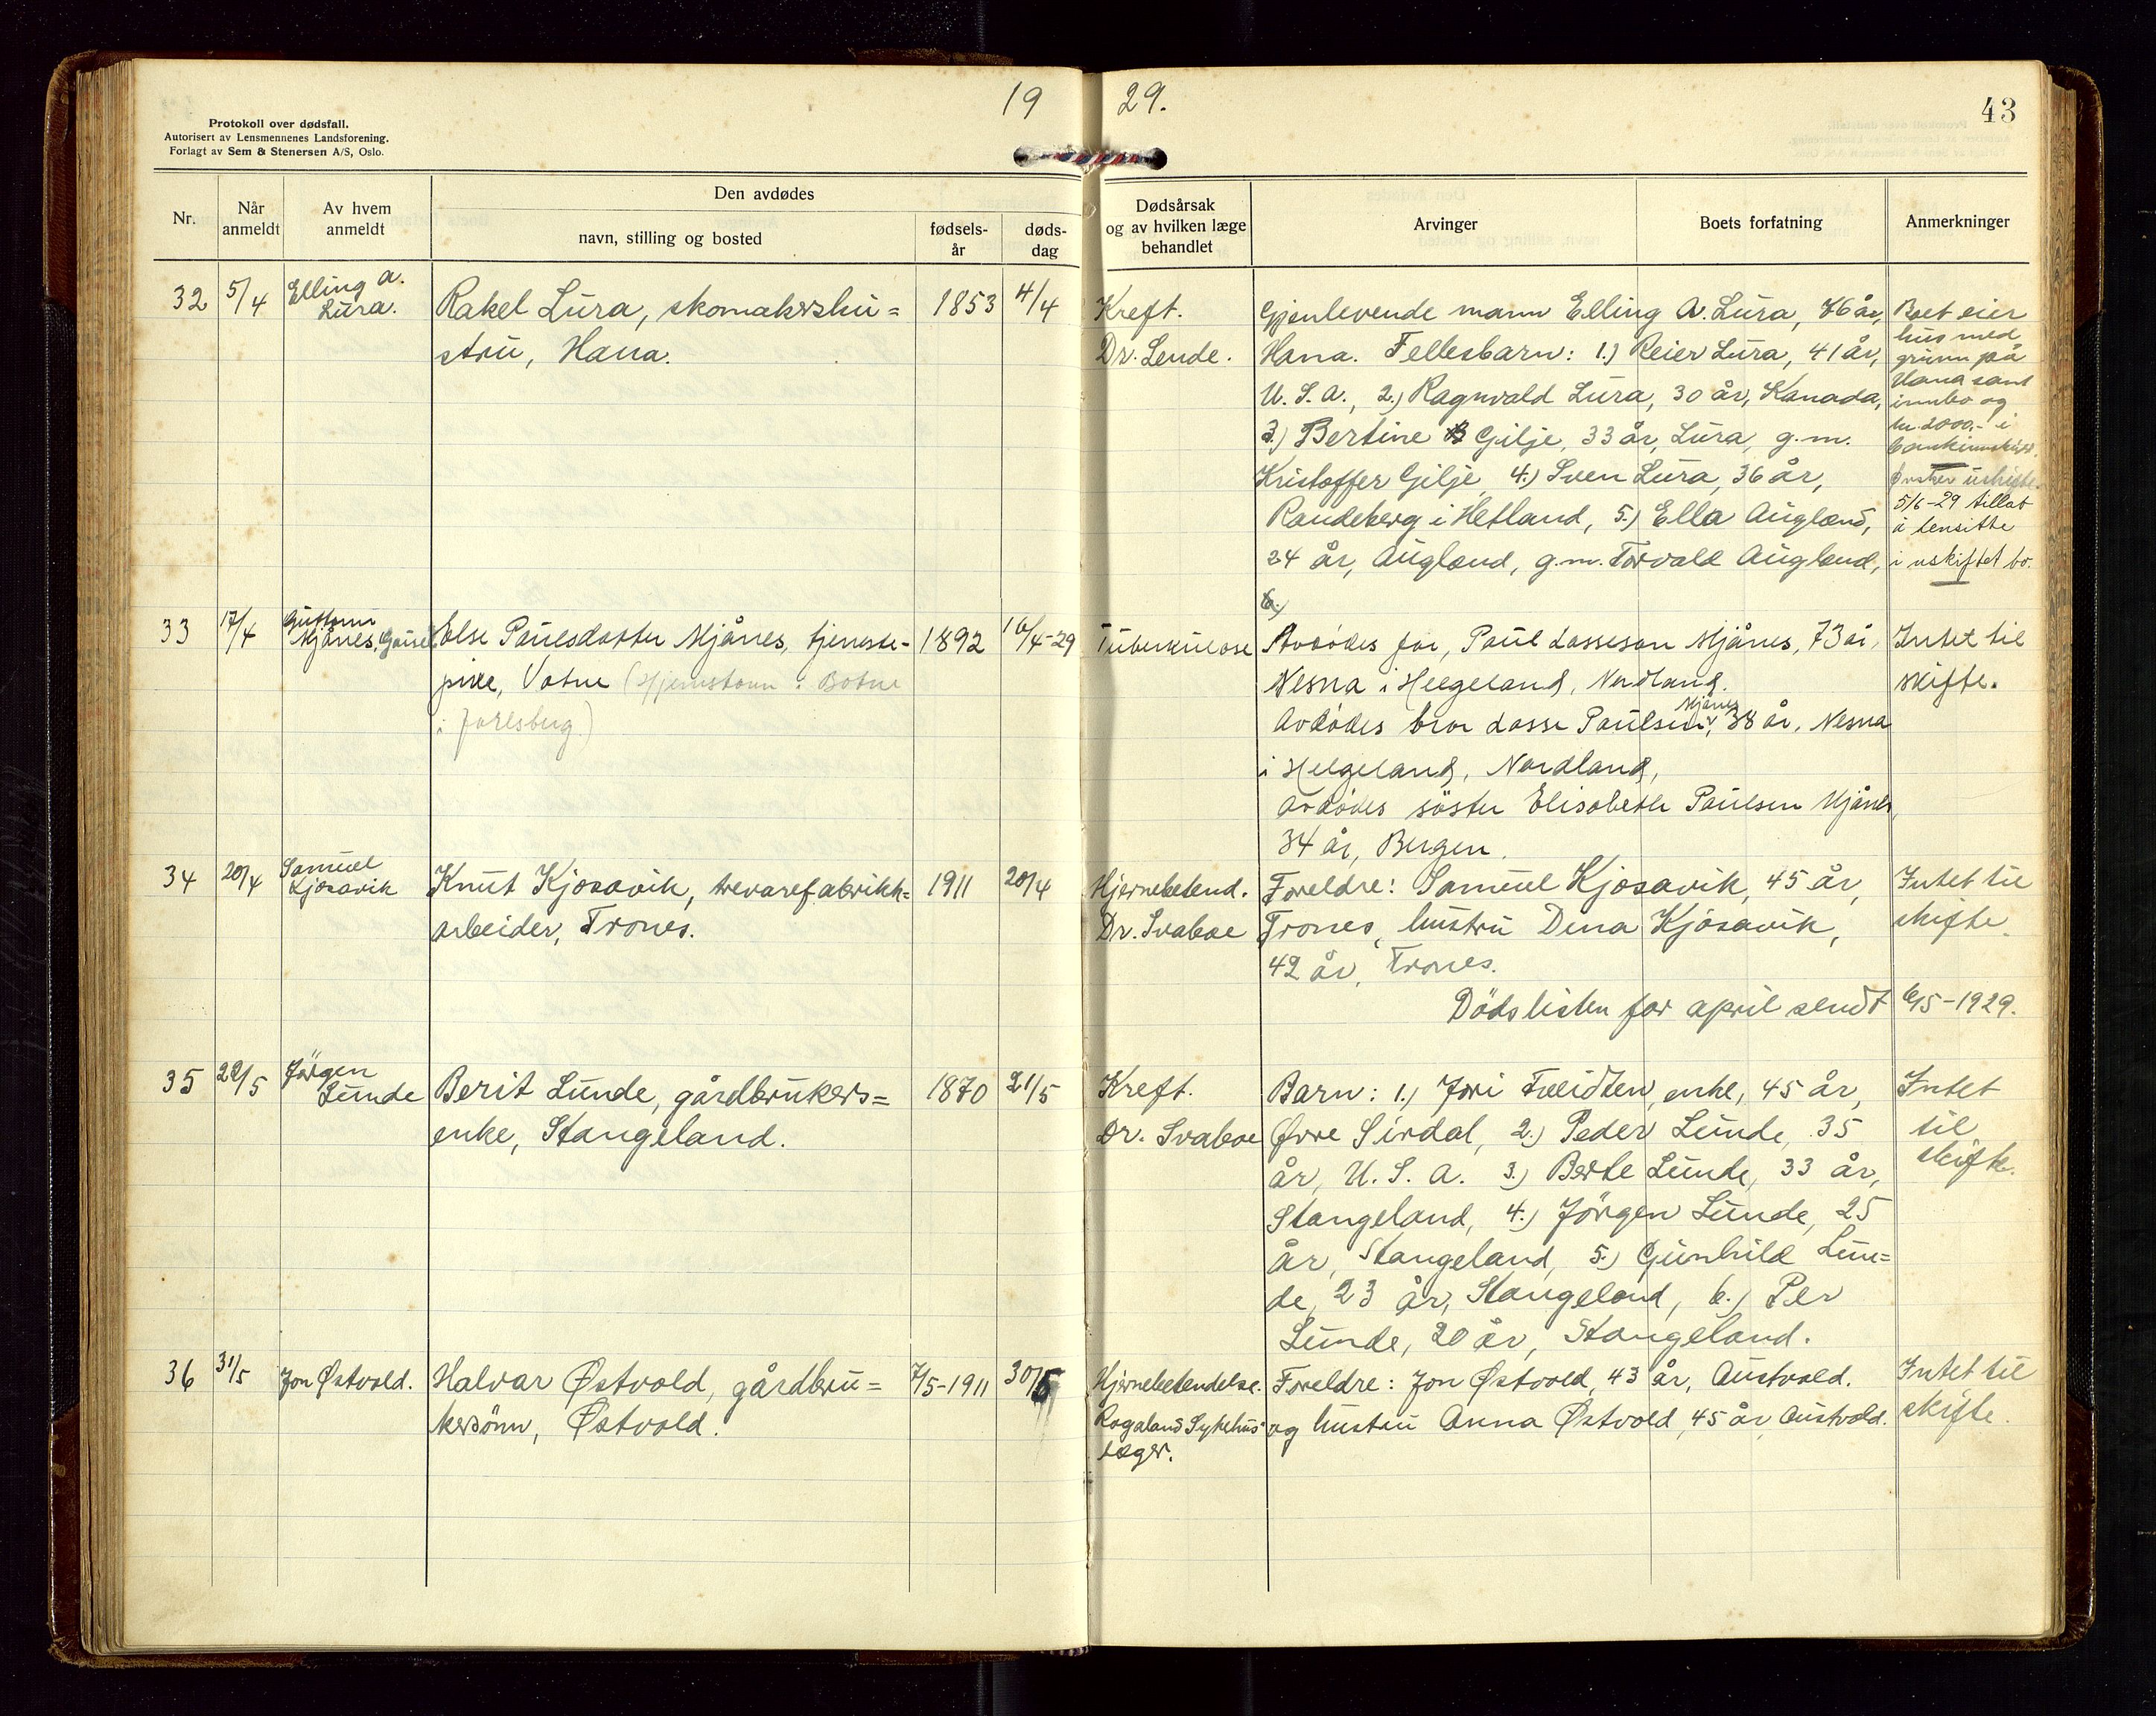 19 29.
43
Protokoll over dødsfall.
Autorisert av Lensmennenes Landsforening.
Forlagt av Sem & Stenersen A/S, Oslo.
Nr.
Når anmeldt
Av hvem anmeldt
Den avdødes
navn, stilling og bosted
fødselsår
dødsdag
Dødsårsak
og av hvilken læge
behandlet
Arvinger
Boets forfatning
Anmerkninger
32 5/4
Elling A.
Lura.
Rakel Lura, skomakershu=
stru, Hana.
1853 4/4
Kreft.
Dr. Lende.
Gjenlevende mann Elling A. Lura, 76 år,
Hana. Fellesbarn: 1.) Reier Lura, 41 år,
U.S.A., 2.) Ragnvald Lura, 30 år, Kanada,
3.) Bertine Gilje, 33 år, Lura, g.m.
Kristoffer Gilje, 4.) Sven Lura, 36 år,
Randeberg i Hetland, 5.) Ella Augland,
24 år, Augland, g.m. Torvald Augland,
6.)
Boet eier
hus med
grunn på
Hana samt
innbo og
kr. 2000,- i
bankinnskudd.
Ønsker uskifte.
5/6-29 tillat
å hensitte
i uskiftet bo.
33 17/4
Guttorm
Mjånes, Gausel
Else Paulsdotter Mjånes, tjeneste-
pike, Votne (Hjemstavn: Botne
i Jarlsberg.)
1892 16/4-29
Tuberkulose
Avdødes far, Paul Lasseson Mjånes, 73 år,
Nesna i Helgeland, Nordland.
Avdødes bror Lasse Paulsen Mjånes, 38 år, Nesna
i Helgeland, Nordland,
Avdødes søster Elisabeth Paulsen Mjånes,
34 år, Bergen.
Intet til
skifte.
34 20/4
Samuel
Kjosavik
Knut Kjosavik, trevarefabrikk=
arbeider, Trones.
1911 20/4
Hjernebetend.
Dr. Svaboe
Foreldre: Samuel Kjosavik, 45 år,
Trones, hustru Dina Kjosavik,
42 år, Trones.
Intet til
skifte.
Dödslisten for april sendt 6/5-1929.
35 22/5
Jörgen
Lunde
Berit Lunde, gårdbrukers=
enke, Stangeland.
1870 21/5
Kreft.
Dr. Svaboe
Barn: 1.) Jori Tveidten, enke, 45 år,
Øvre Sirdal, 2.) Peder Lunde, 35
år, U.S.A. 3.) Berte Lunde, 33 år,
Stangeland, 4.) Jörgen Lunde, 25
år, Stangeland, 5.) Gunhild Lun=
de, 23 år, Stangeland, 6.) Per
Lunde, 20 år, Stangeland.
Intet
til
skifte.
36 31/5
Jon Østvold.
Halvar Østvold, gårdbru=
kersönn, Østvold.
7/5-1911 30/5
Hjernebetendelse.
Rogaland Sykehus'
læger.
Foreldre: Jon Østvold, 43 år, Austvold.
og hustru Anna Østvold, 45 år, Austvold.
Intet til
skifte.